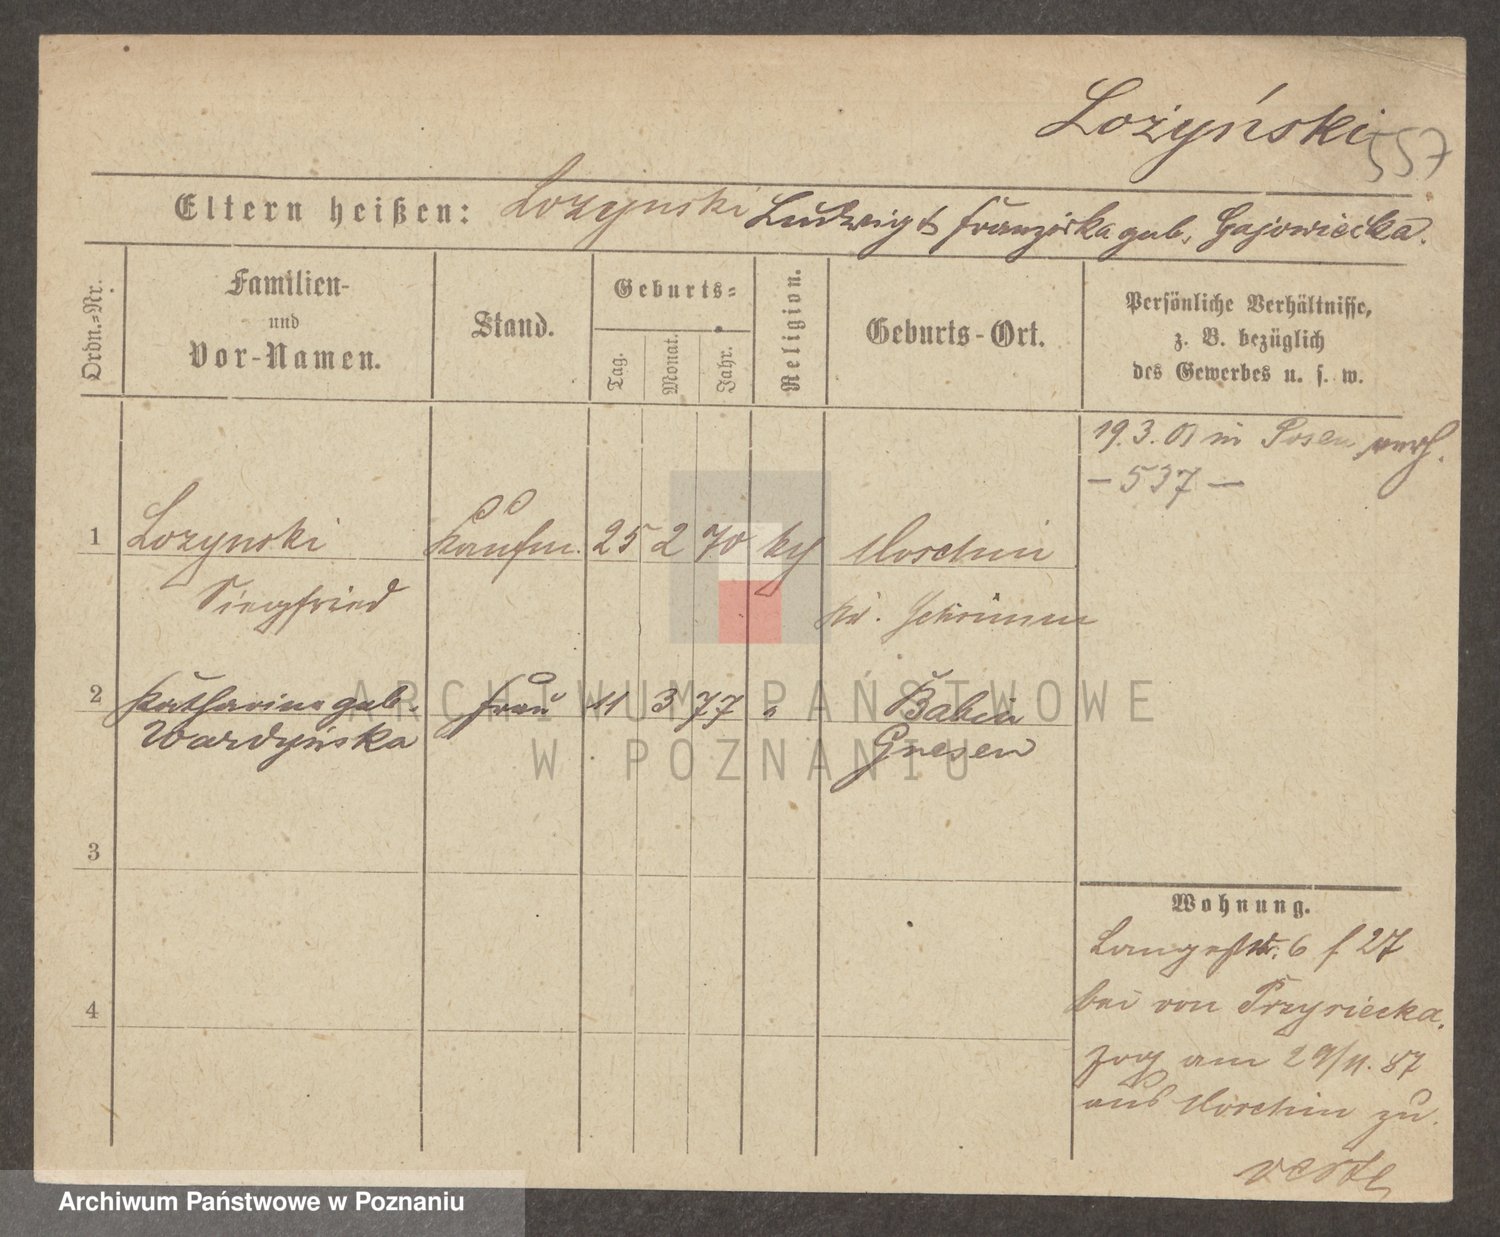 Lożyński
557
Eltern heißen: Lozynski Ludwig & Franziska geb. Gajowiecka.
Ordn.-Nr.
Familien-
und
Vor-Namen.
Stand.
Geburts-
Tag.
Monat.
Jahr.
Religion.
Geburts-Ort.
Persönliche Verhältnisse,
z. B. bezüglich
des Gewerbes u. s. w.
19.3.01 in Posen verh.
– 537 –
1 Lozynski Kaufm. 25 2 70 kth Moschin
Siegfried Kr. Schrimm
2 Katharina geb. Frau 11 3 77 Babin
Wardyńska Gnesen
3
4
Wohnung.
Langestr. 6 f 27
bei von Przysiecka.
zog am 29/11. 87
aus Moschin zu.
verte
ARCHIWUM PAŃSTWOWE
W POZNANIU
Archiwum Państwowe w Poznaniu